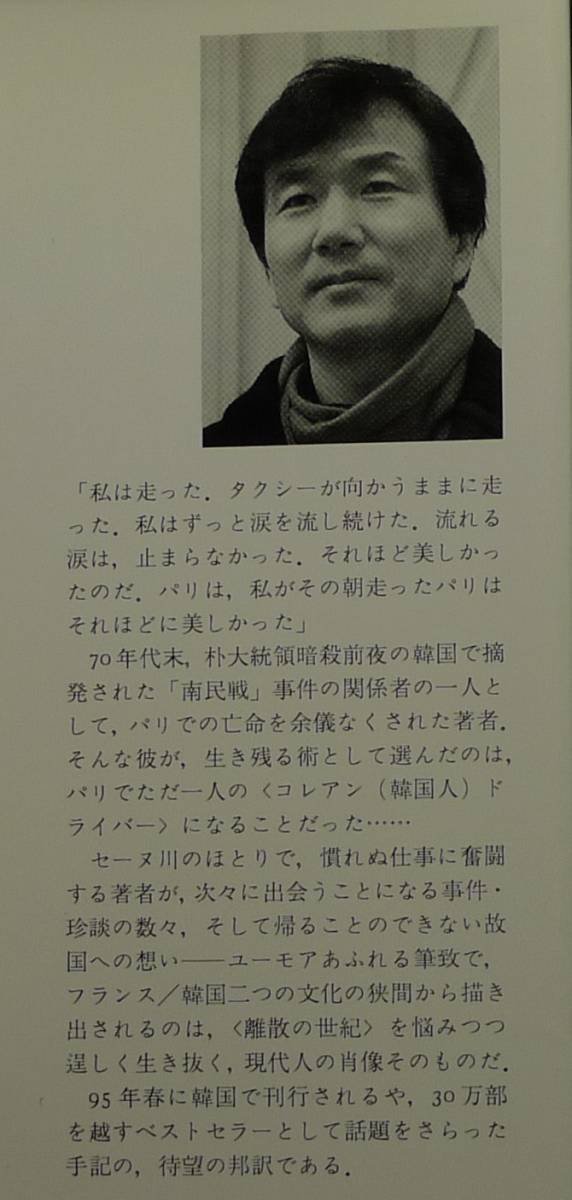 「私は走った．タクシーが向かうままに走
った．私はずっと涙を流し続けた．流れる
涙は，止まらなかった．それほど美しかっ
たのだ．パリは，私がその朝走ったパリは
それほどに美しかった」
70年代末，朴大統領暗殺前夜の韓国で摘
発された「南民戦」事件の関係者の一人と
して，パリでの亡命を余儀なくされた著者．
そんな彼が，生き残る術として選んだのは，
パリでただ一人の〈コレアン（韓国人）ド
ライバー〉になることだった……
セーヌ川のほとりで，慣れぬ仕事に奮闘
する著者が，次々に出会うことになる事件・
珍談の数々，そして帰ることのできない故
国への想い――ユーモアあふれる筆致で，
フランス／韓国二つの文化の狭間から描き
出されるのは，〈離散の世紀〉を悩みつつ
逞しく生き抜く，現代人の肖像そのものだ．
95年春に韓国で刊行されるや，30万部
を越すベストセラーとして話題をさらった
手記の，待望の邦訳である．